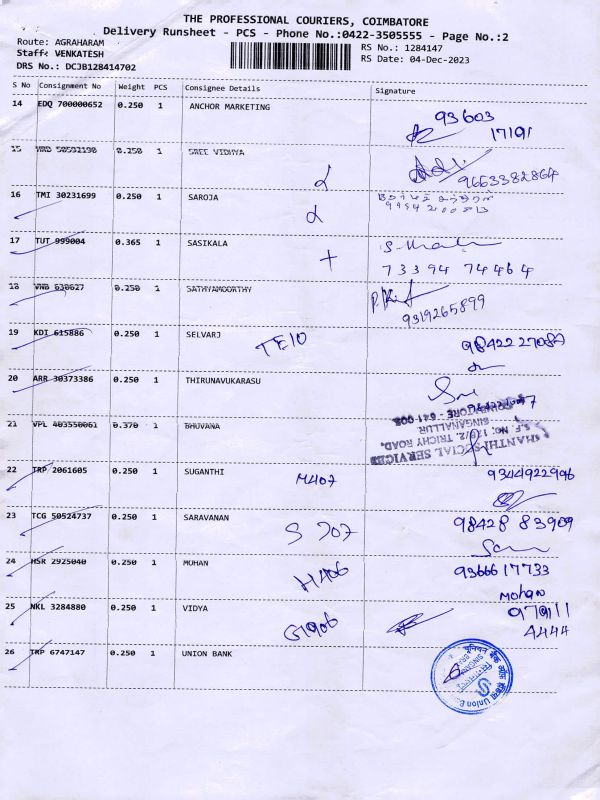 THE PROFESSIONAL COURIERS, COIMBATORE
Delivery Runsheet - PCS - Phone No.:0422-3505555 - Page No.:2
Route: AGRAHARAM
Staff: VENKATESH
DRS No.: DCJB128414702
RS No.: 1284147
RS Date: 04-Dec-2023
S No Consignment No Weight PCS Consignee Details Signature
14 EDQ 700000652 0.250 1 ANCHOR MARKETING
93603
17191
15 0.250 1 SREE VIDHYA
9663382864
16 TMI 30231699 0.250 1 SAROJA
17 TUT 999004 0.365 1 SASIKALA
73394 74464
18 VNB 630627 0.250 1 SATHYAMOORTHY
9319265899
19 KDI 615886 0.250 1 SELVARJ TE10
20 ARR 30373386 0.250 1 THIRUNAVUKARASU
21 VPL 403550061 0.370 1 BHUVANA
SHANTHI SOCIAL SERVICES
TRICHY ROAD,
SINGANALLUR
COIMBATORE - 641 005
22 TRP 2061605 0.250 1 SUGANTHI M407 9344922996
23 TCG 50524737 0.250 1 SARAVANAN S 707 98428 83909
24 HSR 2925040 0.250 1 MOHAN H406 9366617733
Mohan
25 NKL 3284880 0.250 1 VIDYA G1906 979111
A444
26 TRP 6747147 0.250 1 UNION BANK